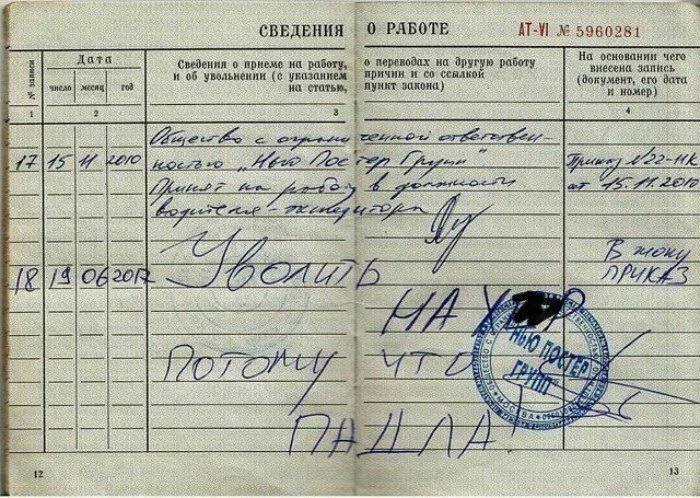 СВЕДЕНИЯ О РАБОТЕ
АТ-VI № 5960281
№ записи
Дата
число месяц год
Сведения о приеме на работу, о переводах на другую работу
и об увольнении (с указанием причин и со ссылкой
на статью, пункт закона)
На основании чего
внесена запись
(документ, его дата
и номер)
1 2 3 4
Общество с ограниченной ответствен-
17 15 11 2010 ностью „Нью Постер Групп" Приказ N22-НК
Принят на работу в должности от 15.11.2010
водителя-экспедитора
18 19 06 2017 УВОЛИТЬ В жопу
ПРИКАЗ
НАХ
ПОТОМУ ЧТО
ПАДЛА!
НЬЮ ПОСТЕР
ГРУПП
МОСКВА
12
13